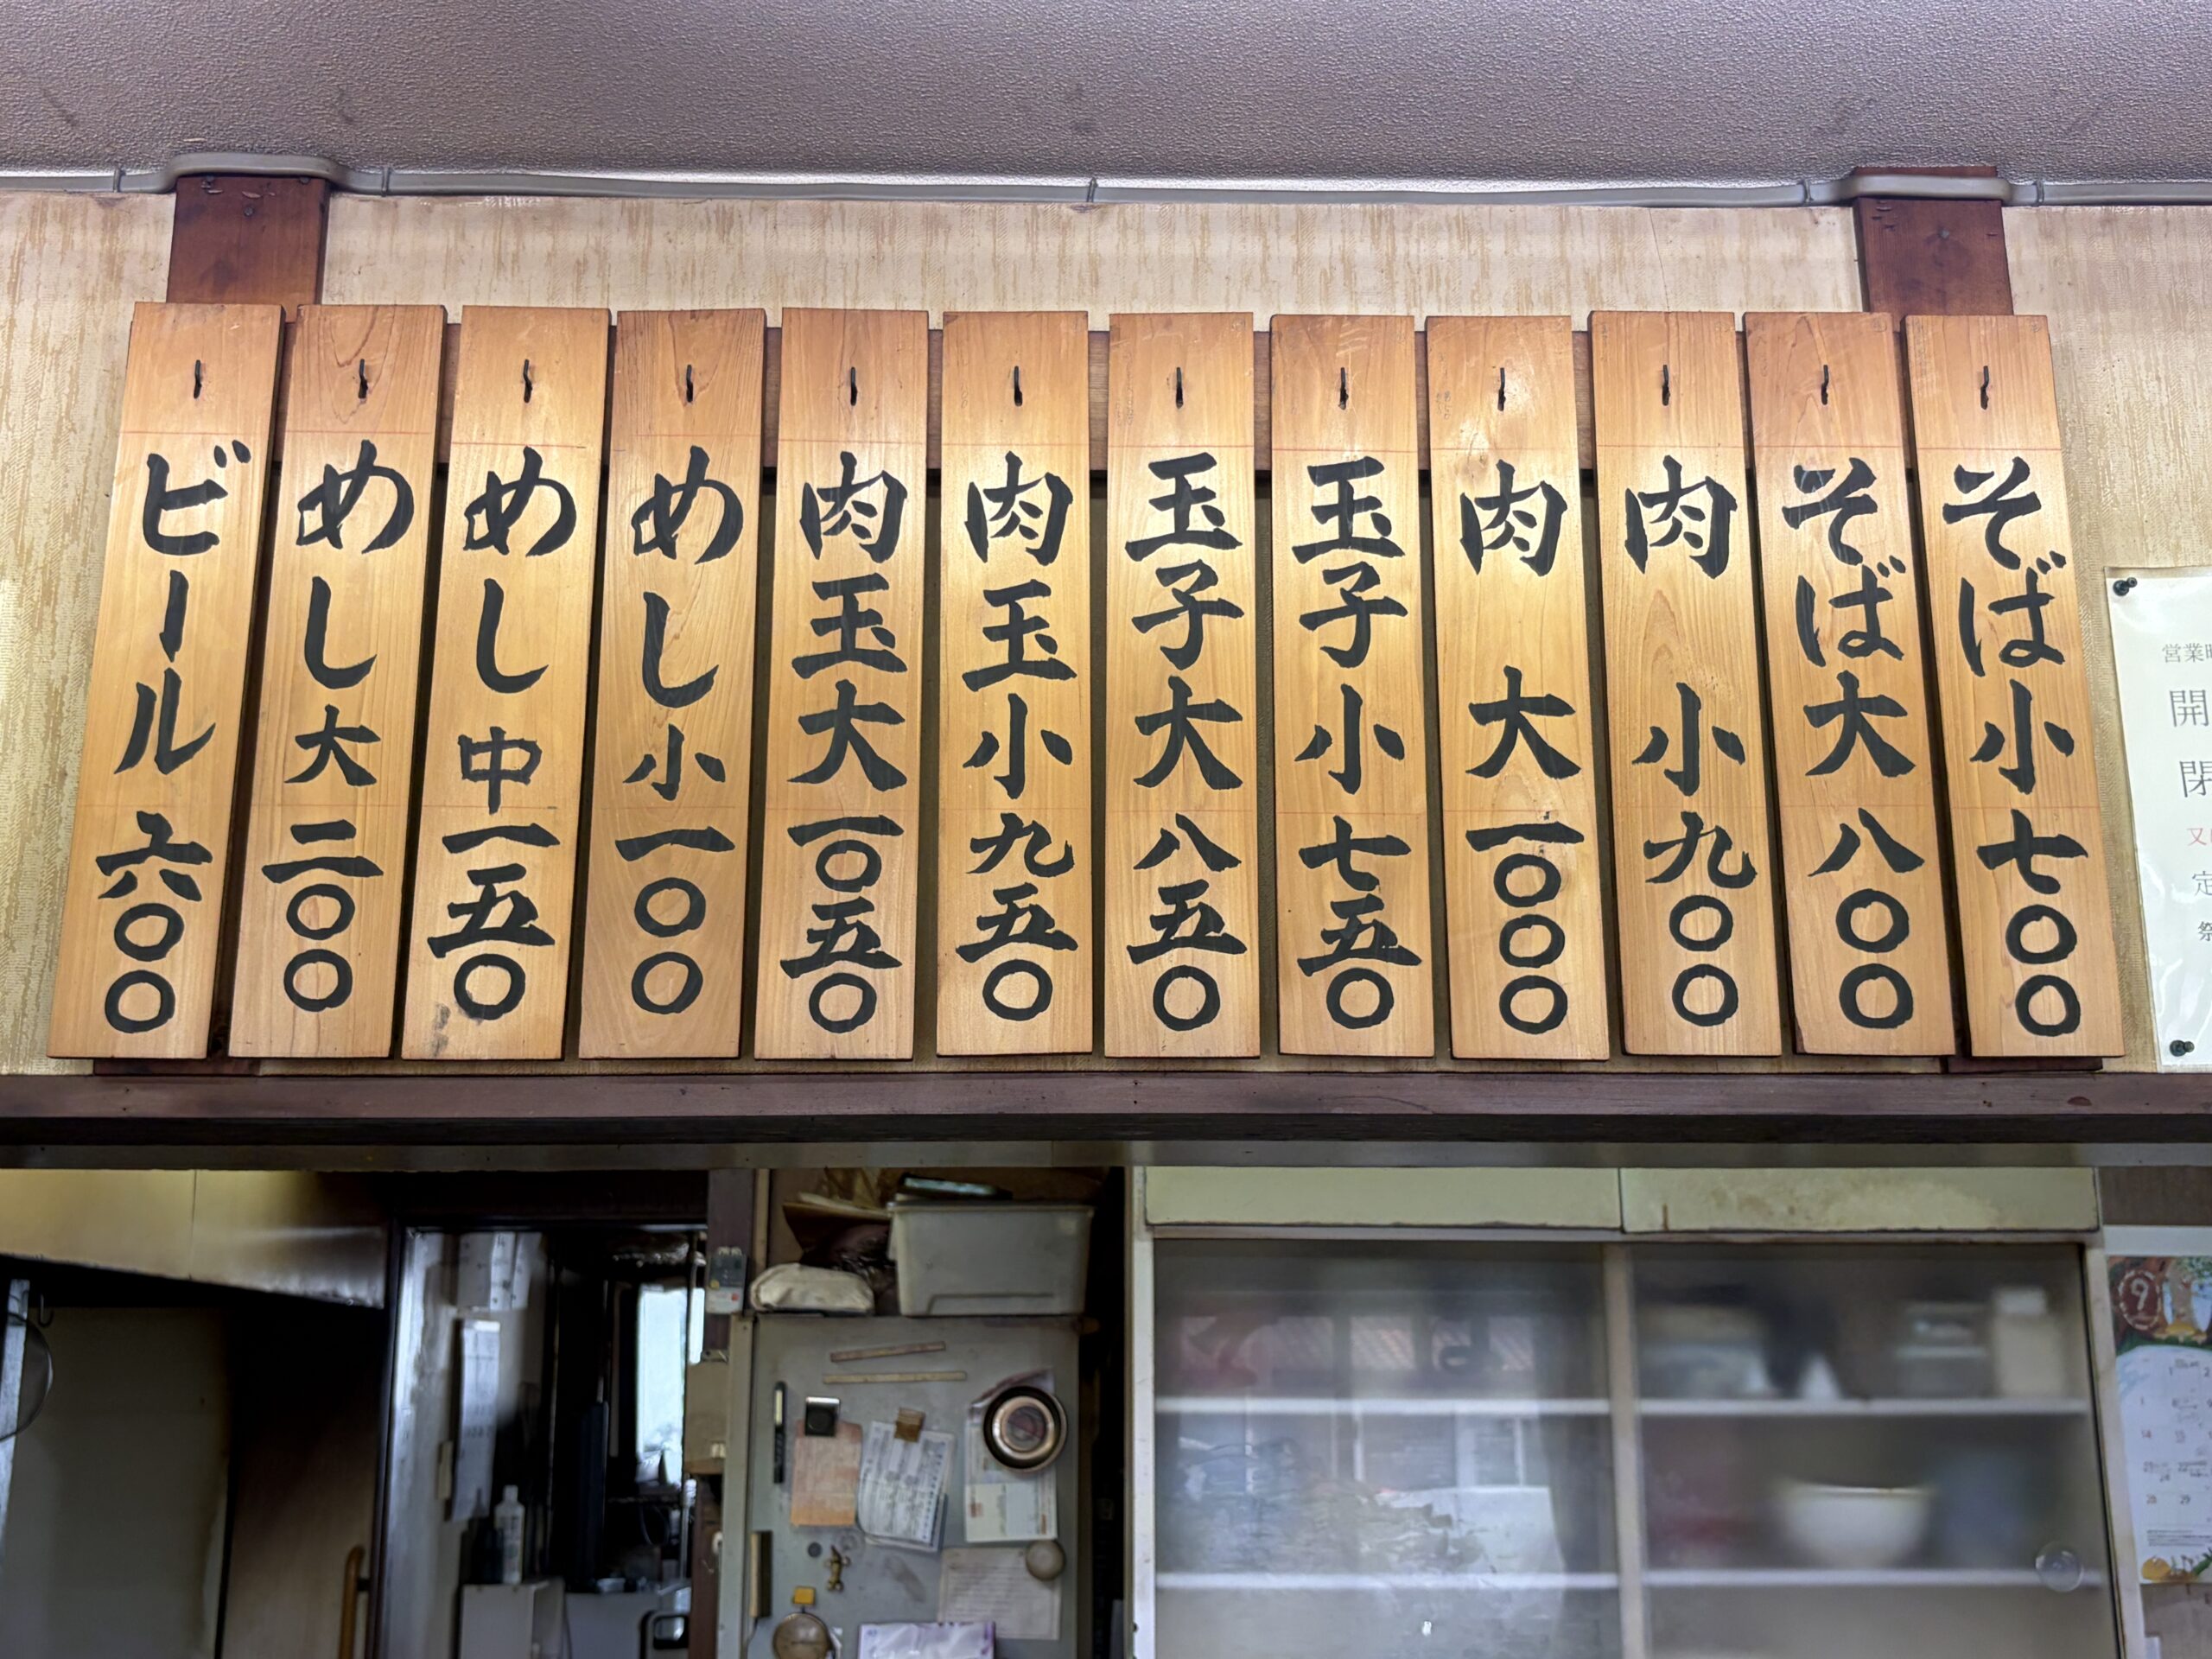 そば小七〇〇
そば大八〇〇
肉小九〇〇
肉大一〇〇〇
玉子小七五〇
玉子大八五〇
肉玉小九五〇
肉玉大一〇五〇
めし小一〇〇
めし中一五〇
めし大二〇〇
ビール六〇〇
営業
開
閉
又
定
祭
9
14
28 29